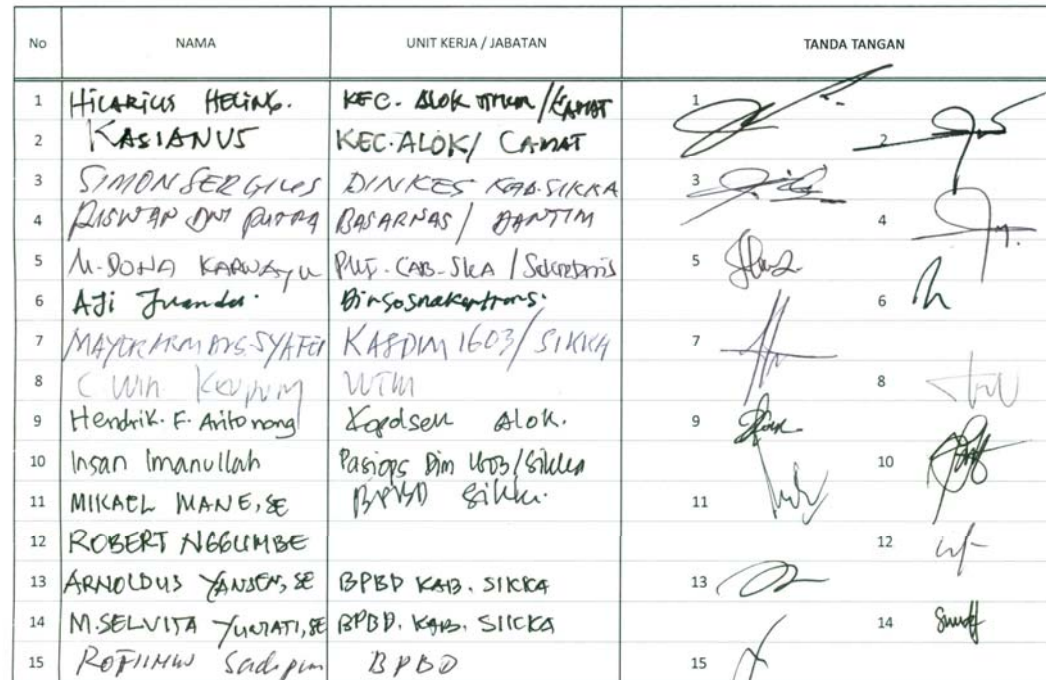 No NAMA UNIT KERJA / JABATAN TANDA TANGAN
1 HILARIUS HELING. KEC. ALOK TIMUR / CAMAT 1
2 KASIANUS KEC. ALOK / CAMAT 2
3 SIMON SERGIUS DINKES KAB. SIKKA 3
4 RISWAN PUTRA BASARNAS / DANTIM 4
5 M. DONA KARWAYU PMI. CAB. 5
6 AJI Juanda. Dinsosnakertrans. 6
7 KASDIM 1603 / SIKKA 7
8 C Win 8
9 Hendrik. F. Aritonang Kapolsek Alok. 9
10 Insan Imanullah Pasiops Dim 1603/Sikka 10
11 MIKAEL MANE, SE BPBD Sikka. 11
12 ROBERT NGGUMBE 12
13 ARNOLDUS YANSEN, SE BPBD KAB. SIKKA 13
14 M. SELVITA YUNIATI, SE BPBD. KAB. SIKKA 14
15 BPBD 15